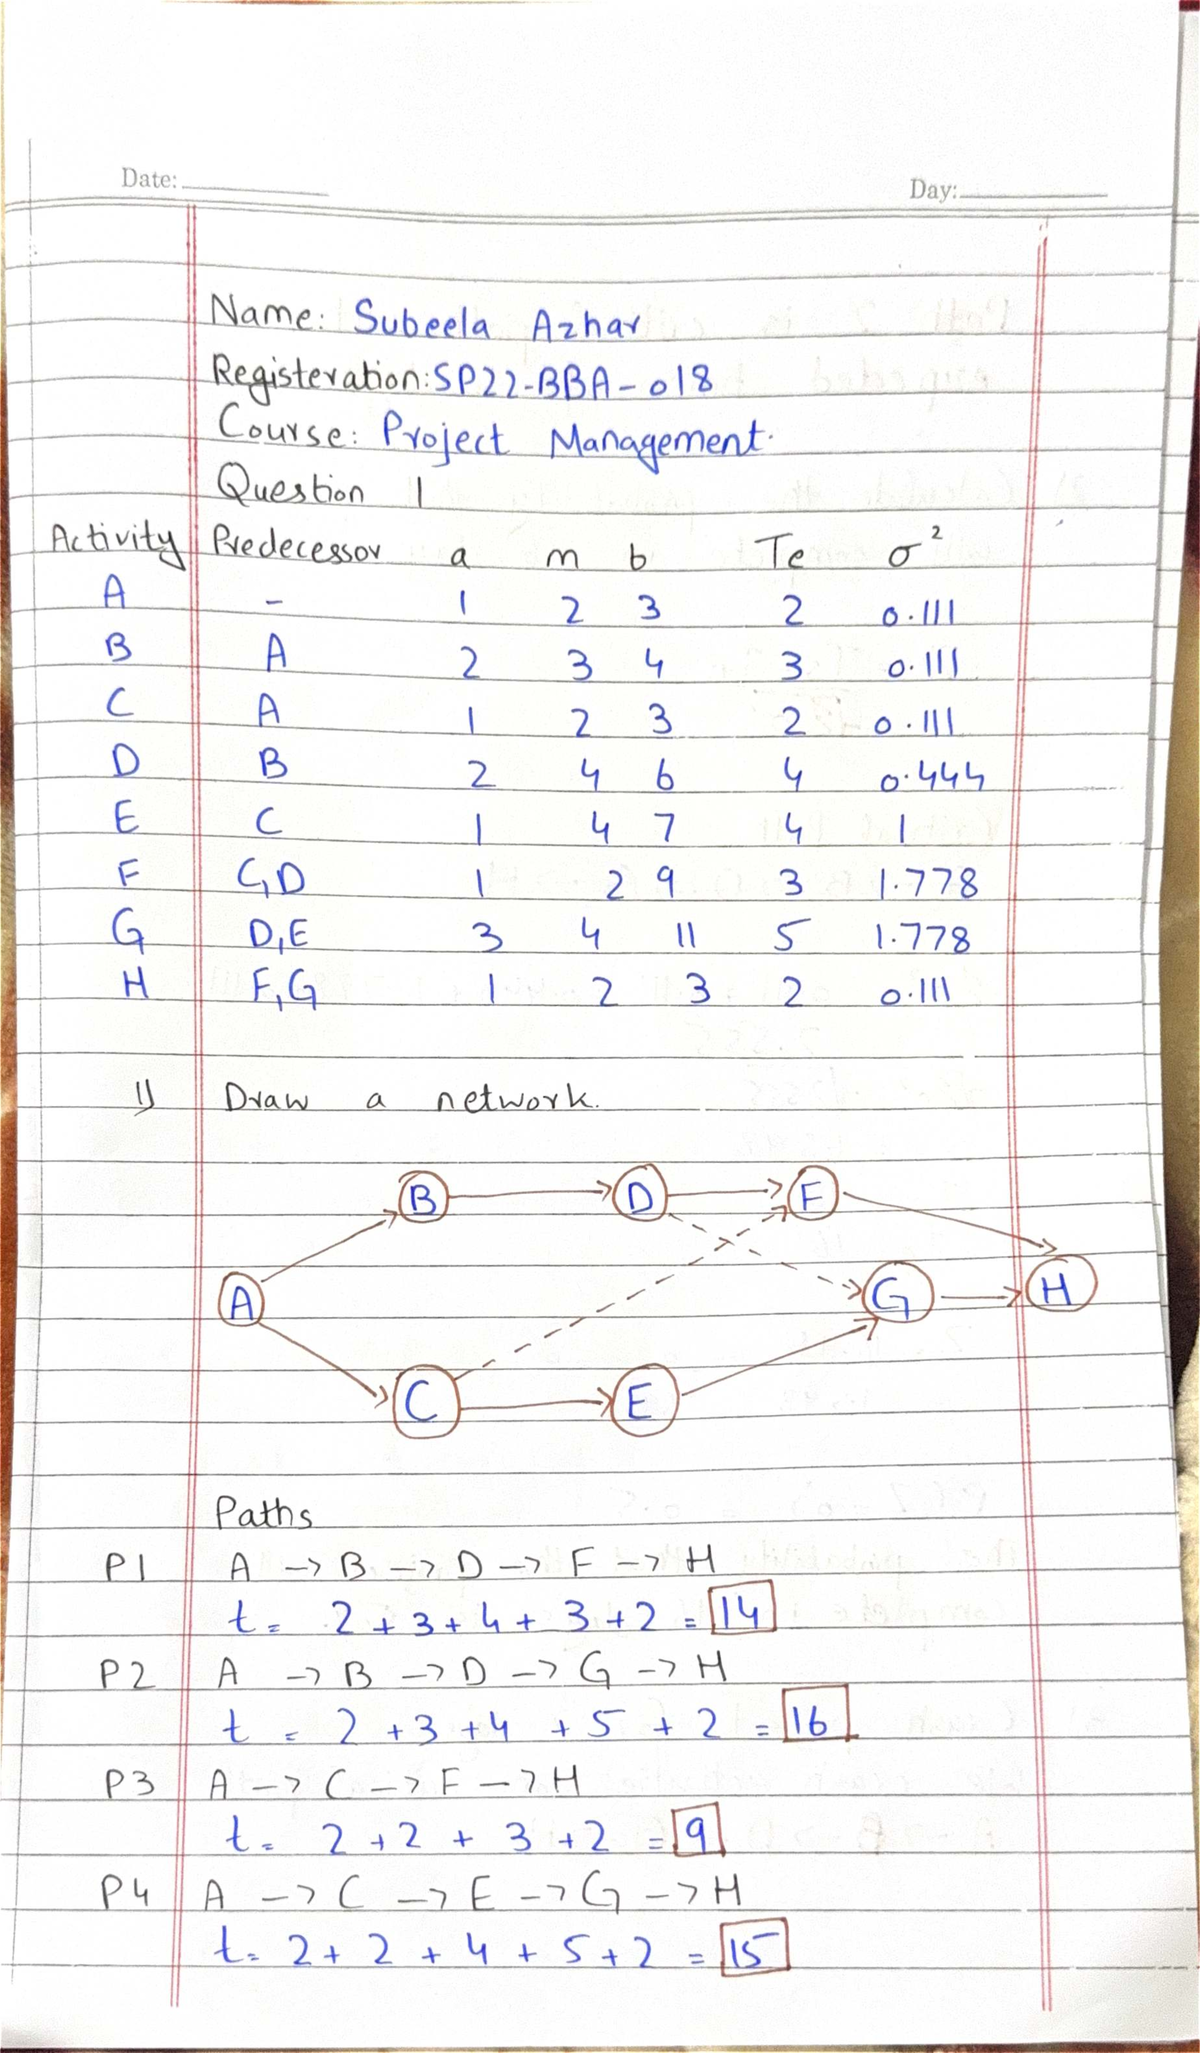 Date:
Day:
Name: Subeela Azhar
Registeration: SP22-BBA-018
Course: Project Management.
Question 1
Activity Predecessor a m b Te σ²
A - 1 2 3 2 0.111
B A 2 3 4 3 0.111
C A 1 2 3 2 0.111
D B 2 4 6 4 0.444
E C 1 4 7 4 1
F C,D 1 2 9 3 1.778
G D,E 3 4 11 5 1.778
H F,G 1 2 3 2 0.111
1) Draw a network.
B D F
A G H
C E
Paths
P1 A -> B -> D -> F -> H
t = 2 + 3 + 4 + 3 + 2 = 14
P2 A -> B -> D -> G -> H
t = 2 + 3 + 4 + 5 + 2 = 16
P3 A -> C -> F -> H
t = 2 + 2 + 3 + 2 = 9
P4 A -> C -> E -> G -> H
t = 2 + 2 + 4 + 5 + 2 = 15